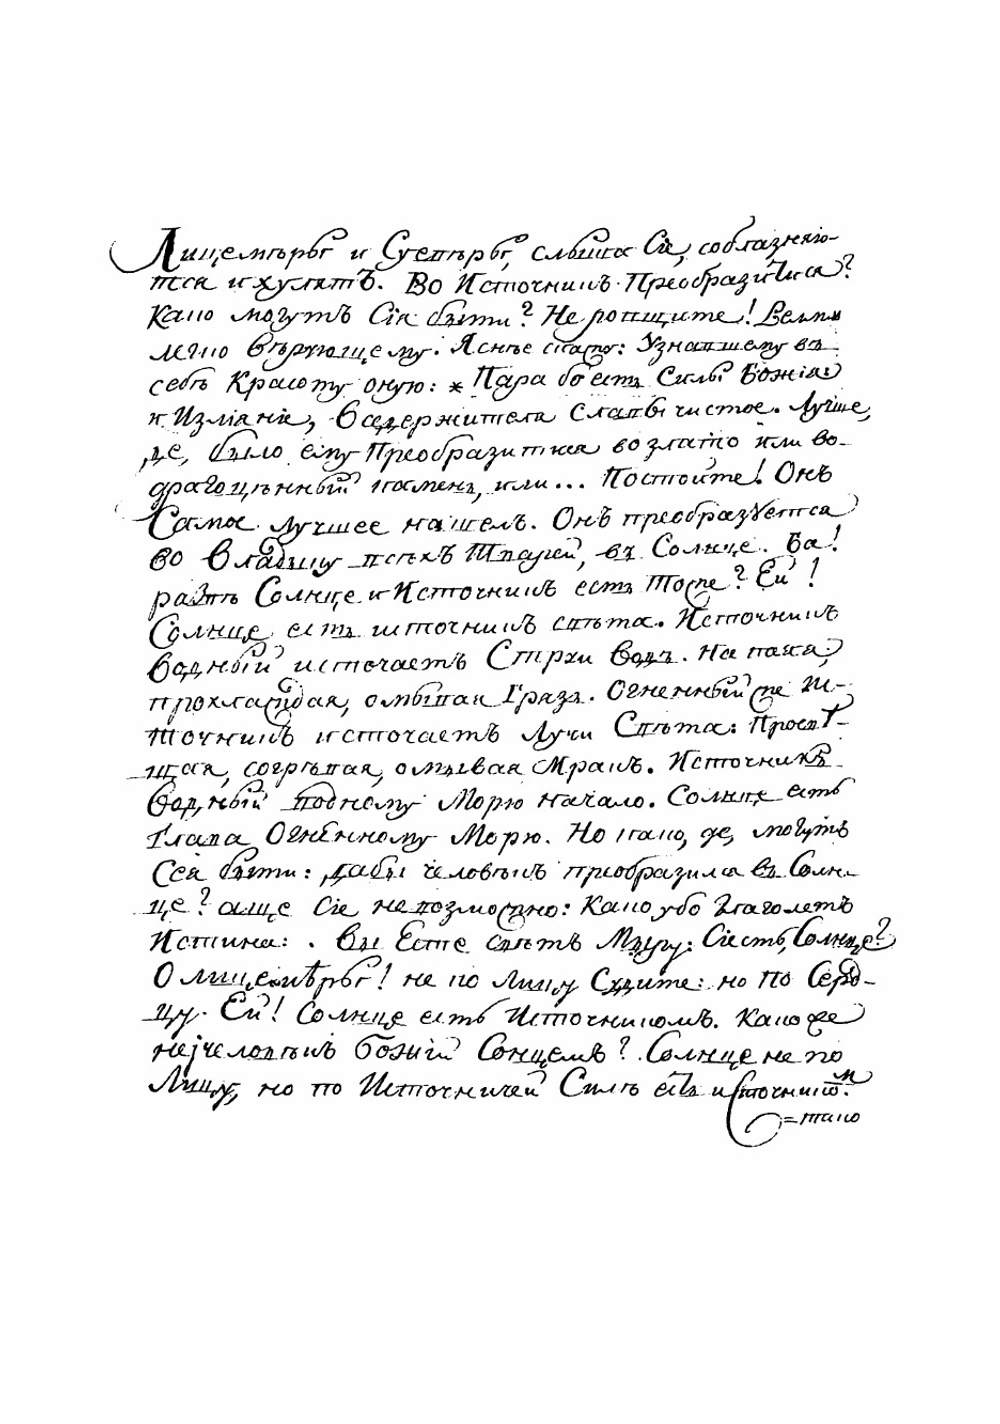 Лицемѣры и Суевѣры, слыша Сіе, соблазняю-
тся и хулятъ. Во Источникъ Преобразитися?
Како могутъ Сія быти? Не ропщите! Вельми
легко Вѣрующему. Яснѣе скажу: Узнавшему въ
себѣ Красоту оную: * Пара бо есть Силы Божія:
и Изліяніе, Вседержителя Славы чистое. Лучше,
де, было ему Преобразитися во злато или во
драгоцѣнный камень, или... Постойте! Онъ
Самое лучшее нашелъ. Онъ преобразуется
во Владыку всѣхъ Тварей, въ Солнце. Ба!
развѣ Солнце и Источникъ есть Тожде? Ей!
Солнце есть источникъ свѣта. Источникъ
Водный источаетъ Струи Водъ. Напаяя,
прохлаждая, омывая Грязь. Огненный же И-
сточникъ источаетъ Лучи Свѣта: Просвѣ-
щая, согрѣвая, омывая Мракъ. Источникъ
Водный Водному Морю начало. Солнце есть
Глава Огненному Морю. Но како, де, могутъ
Сея быти: дабы человѣкъ преобразился въ Солн-
це? аще Сіе невозможно: Како убо Глаголетъ
Истина: . Вы Есте свѣтъ Міру: Сіесть, Солнце?
О лицемѣры! не по Лицу Судите: но по Серд-
цу. Ей! Солнце есть Источникомъ. Како же
не человѣкъ Божій Сонцемъ? Солнце не по
Лицу, но по Источничей Силѣ есть источником.
= тако